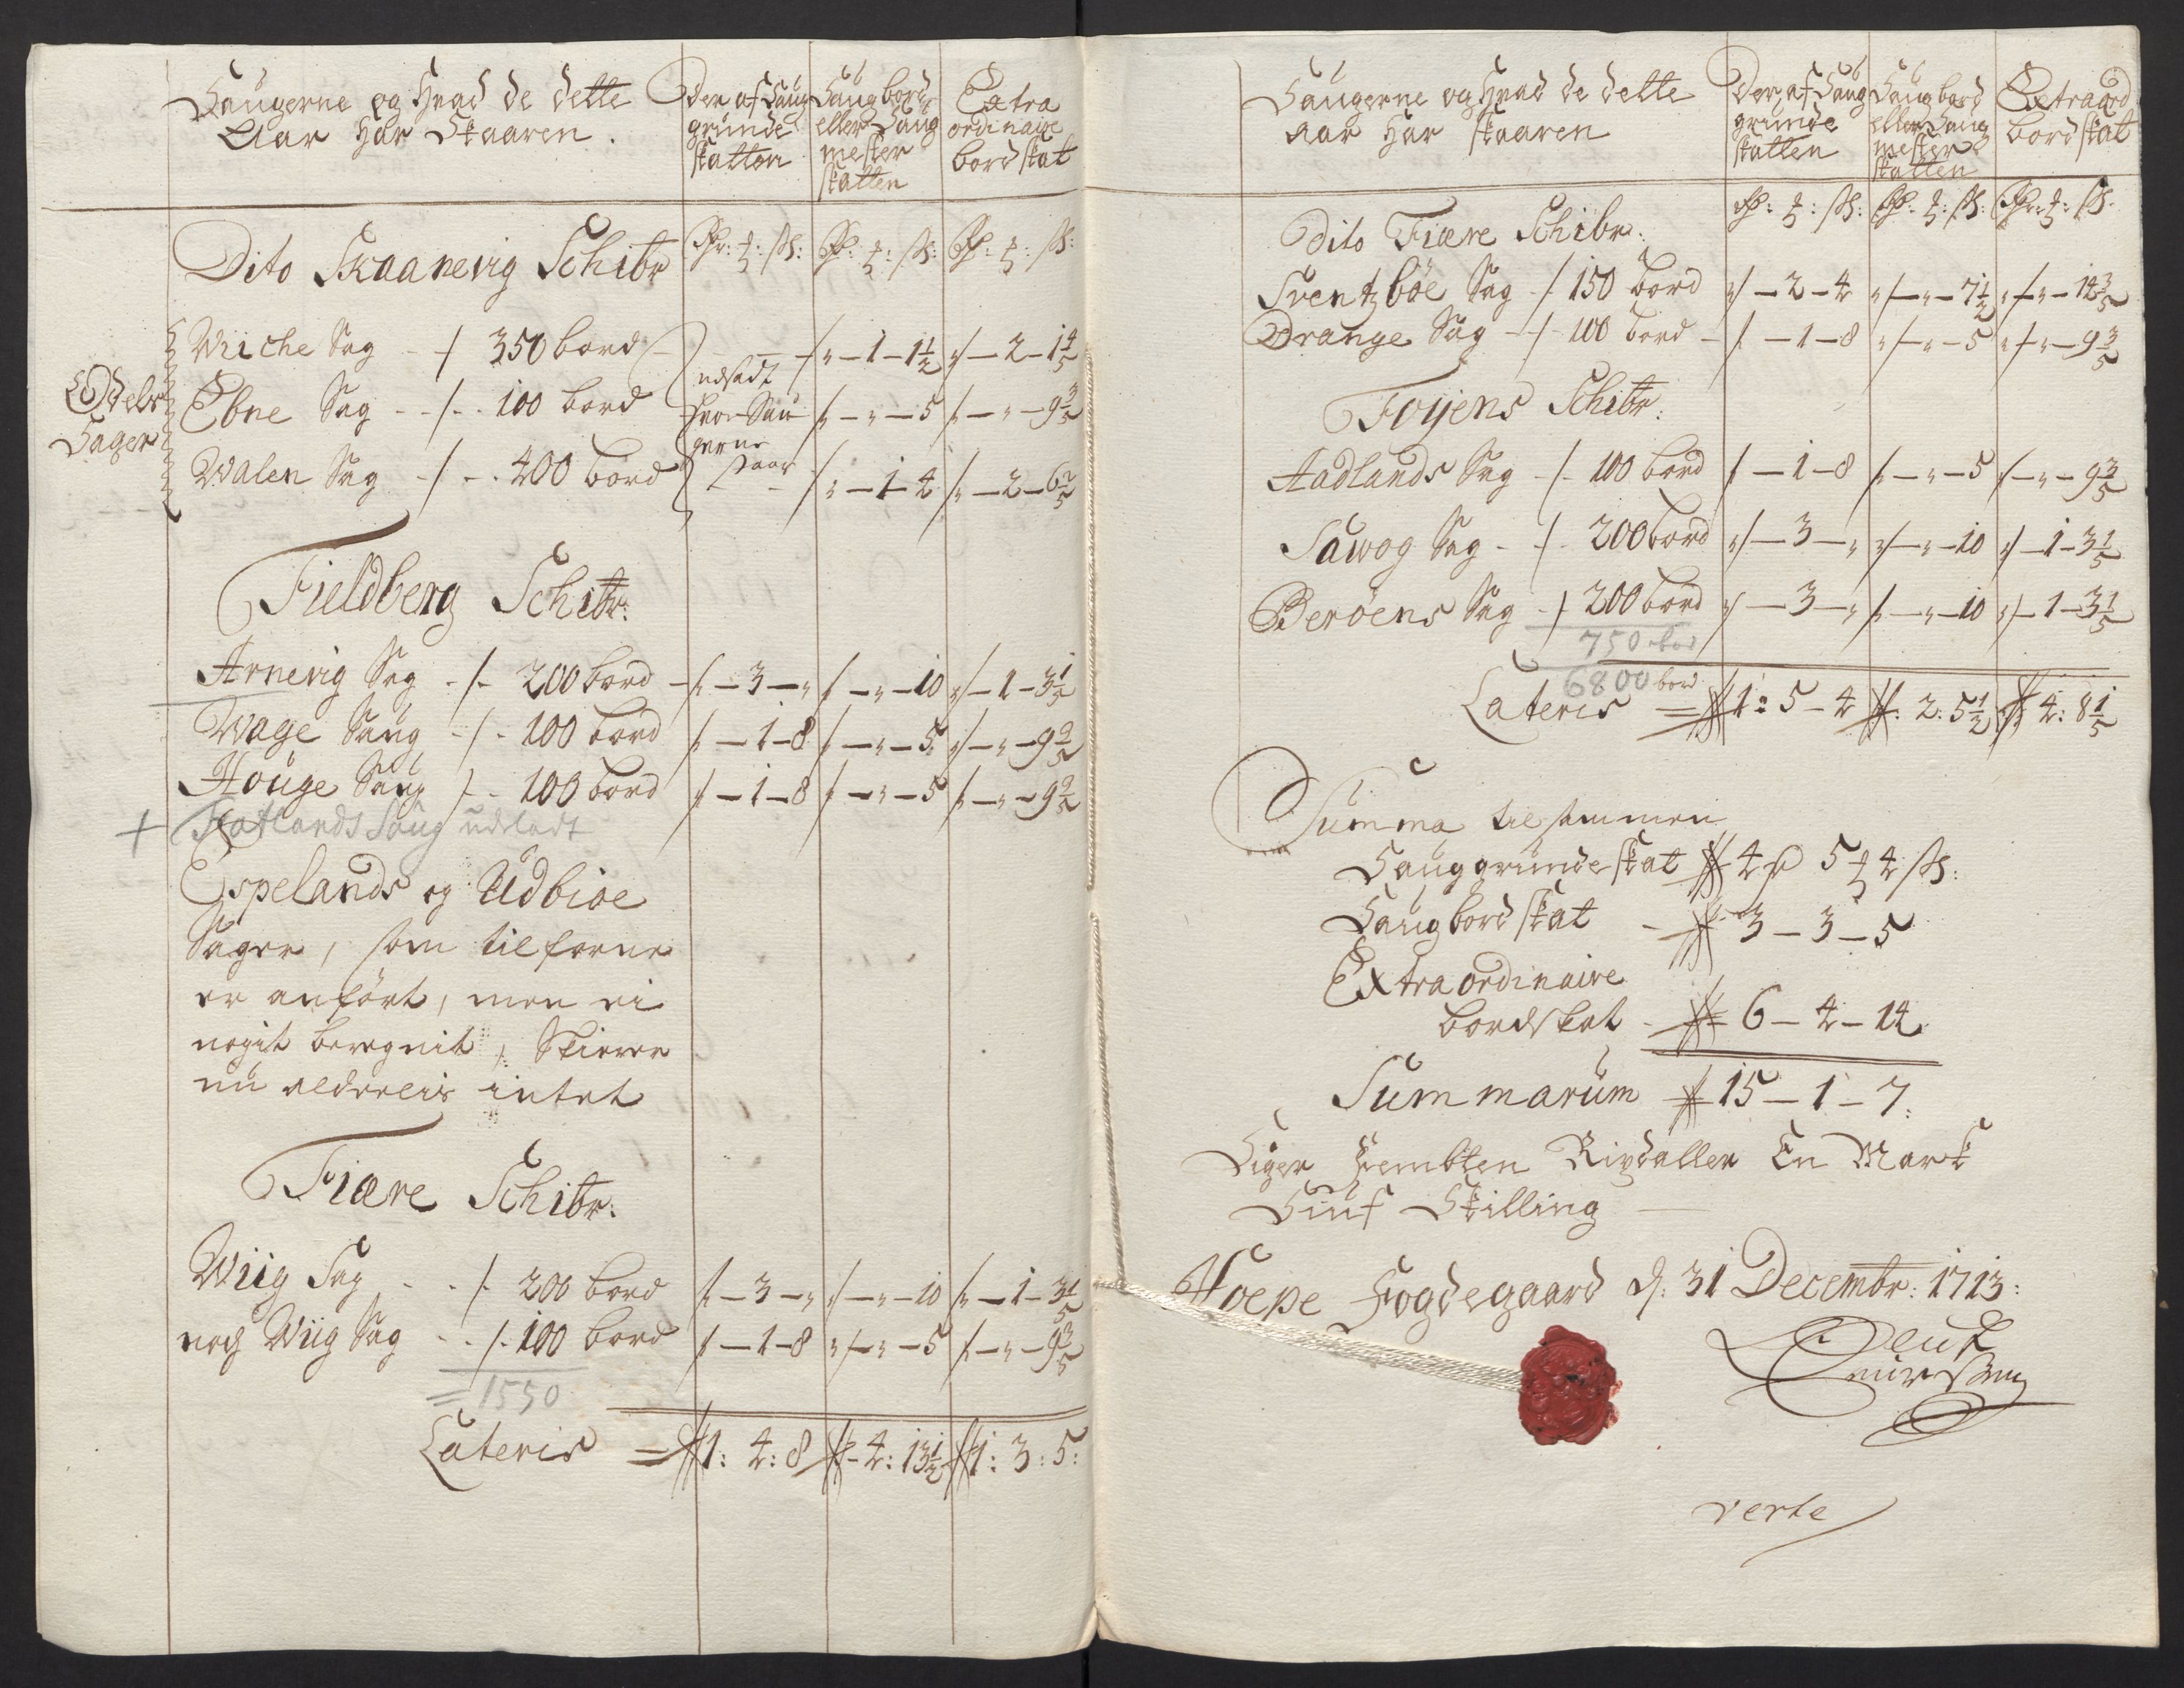 Saugerne og Hvad de dette
Aar har Skaaren.
Der af Saug
grunde
skatten
Saugbord
eller Saug
mester
skatten
Extra
ordinaire
bordskat
Dito Skaanevig Schibr
Rdr: ꝥ: ß: Rdr: ꝥ: ß: Rdr: ꝥ: ß:
Odels
Sager
Wiche Sag - / 350 bord - - / „ - 1 - 1½ „/ - 2 - 1 4/5
Ebne Sag - - / - 100 bord / - „ - 5 / - „ - 9 3/5
Walen Sag - / - 400 bord / „ - 1 - 4 / - 2 - 6 2/5
udsadt
hvor Sau
gerne
staar
Fieldberg Schibr:
Arnevig Sag - / - 200 bord - / - 3 - „ / - „ - 10 „/ - 1 - 3 1/5
Wage Saug - / - 100 bord / - 1 - 8 / - „ - 5 „/ - „ - 9 3/5
Houge Saug / - 100 bord / - 1 - 8 / - „ - 5 / - „ - 9 3/5
+ Hatlands Saug udeladt
Espelands og Udbioe
Sager, som tilforne
er anfört, men ei
nogit beregnit, Skierer
nu aldeelis intet
Fiære Schibr:
Wiig Sag - - / - 200 bord / - 3 - „ / - „ - 10 / - 1 - 3 1/5
noch Wiig Sag - - / - 100 bord / - 1 - 8 „/ - „ - 5 / - „ - 9 3/5
= 1550
Lateris = 1: 4: 8 - 4: 13½ 1: 3: 5:
Saugerne og Hvad de dette
aar har skaaren
Der af Saug
grunde
skatten
Saugbord
eller Saug
mester
skatten
Extraord
bordskat
Rdr: ꝥ: ß: Rdr: ꝥ: ß: Rdr: ꝥ: ß:
Dito Fiære Schibr:
Sventzböe Sag - / 150 bord „/ - 2 - 4 „/ - „ - 7½ „/ - „ - 14 2/5
Drange Sag - / - 100 bord - / - 1 - 8 „/ - „ - 5 „/ - „ - 9 3/5
Foyens Schibr:
Aadlands Sag - / - 100 bord / - 1 - 8 / - „ - 5 / - „ - 9 3/5
Sawog Sag - / - 200 bord „/ - 3 - „ „/ - „ - 10 „/ - 1 - 3 1/5
Beröens Sag - / 200 bord „/ - 3 - „ / - „ - 10 „/ - 1 - 3 1/5
750 bord
6800 bord
Lateris = 1: 5 - 4 : 2: 5½ 4: 8 1/5
Summa tilsammen
Sauggrundeskat 4 rdr 5 ꝥ 4 ß:
Saugbordskat - 3 - 3 - 5
Extraordinaire
bordskat - 6 - 4 - 14
Summarum 15 - 1 - 7:
Siger Fembten Rixdaller En Mark
Siuf Skilling
Hoepe Fogdegaard d: 31 Decembr: 1713:
verte